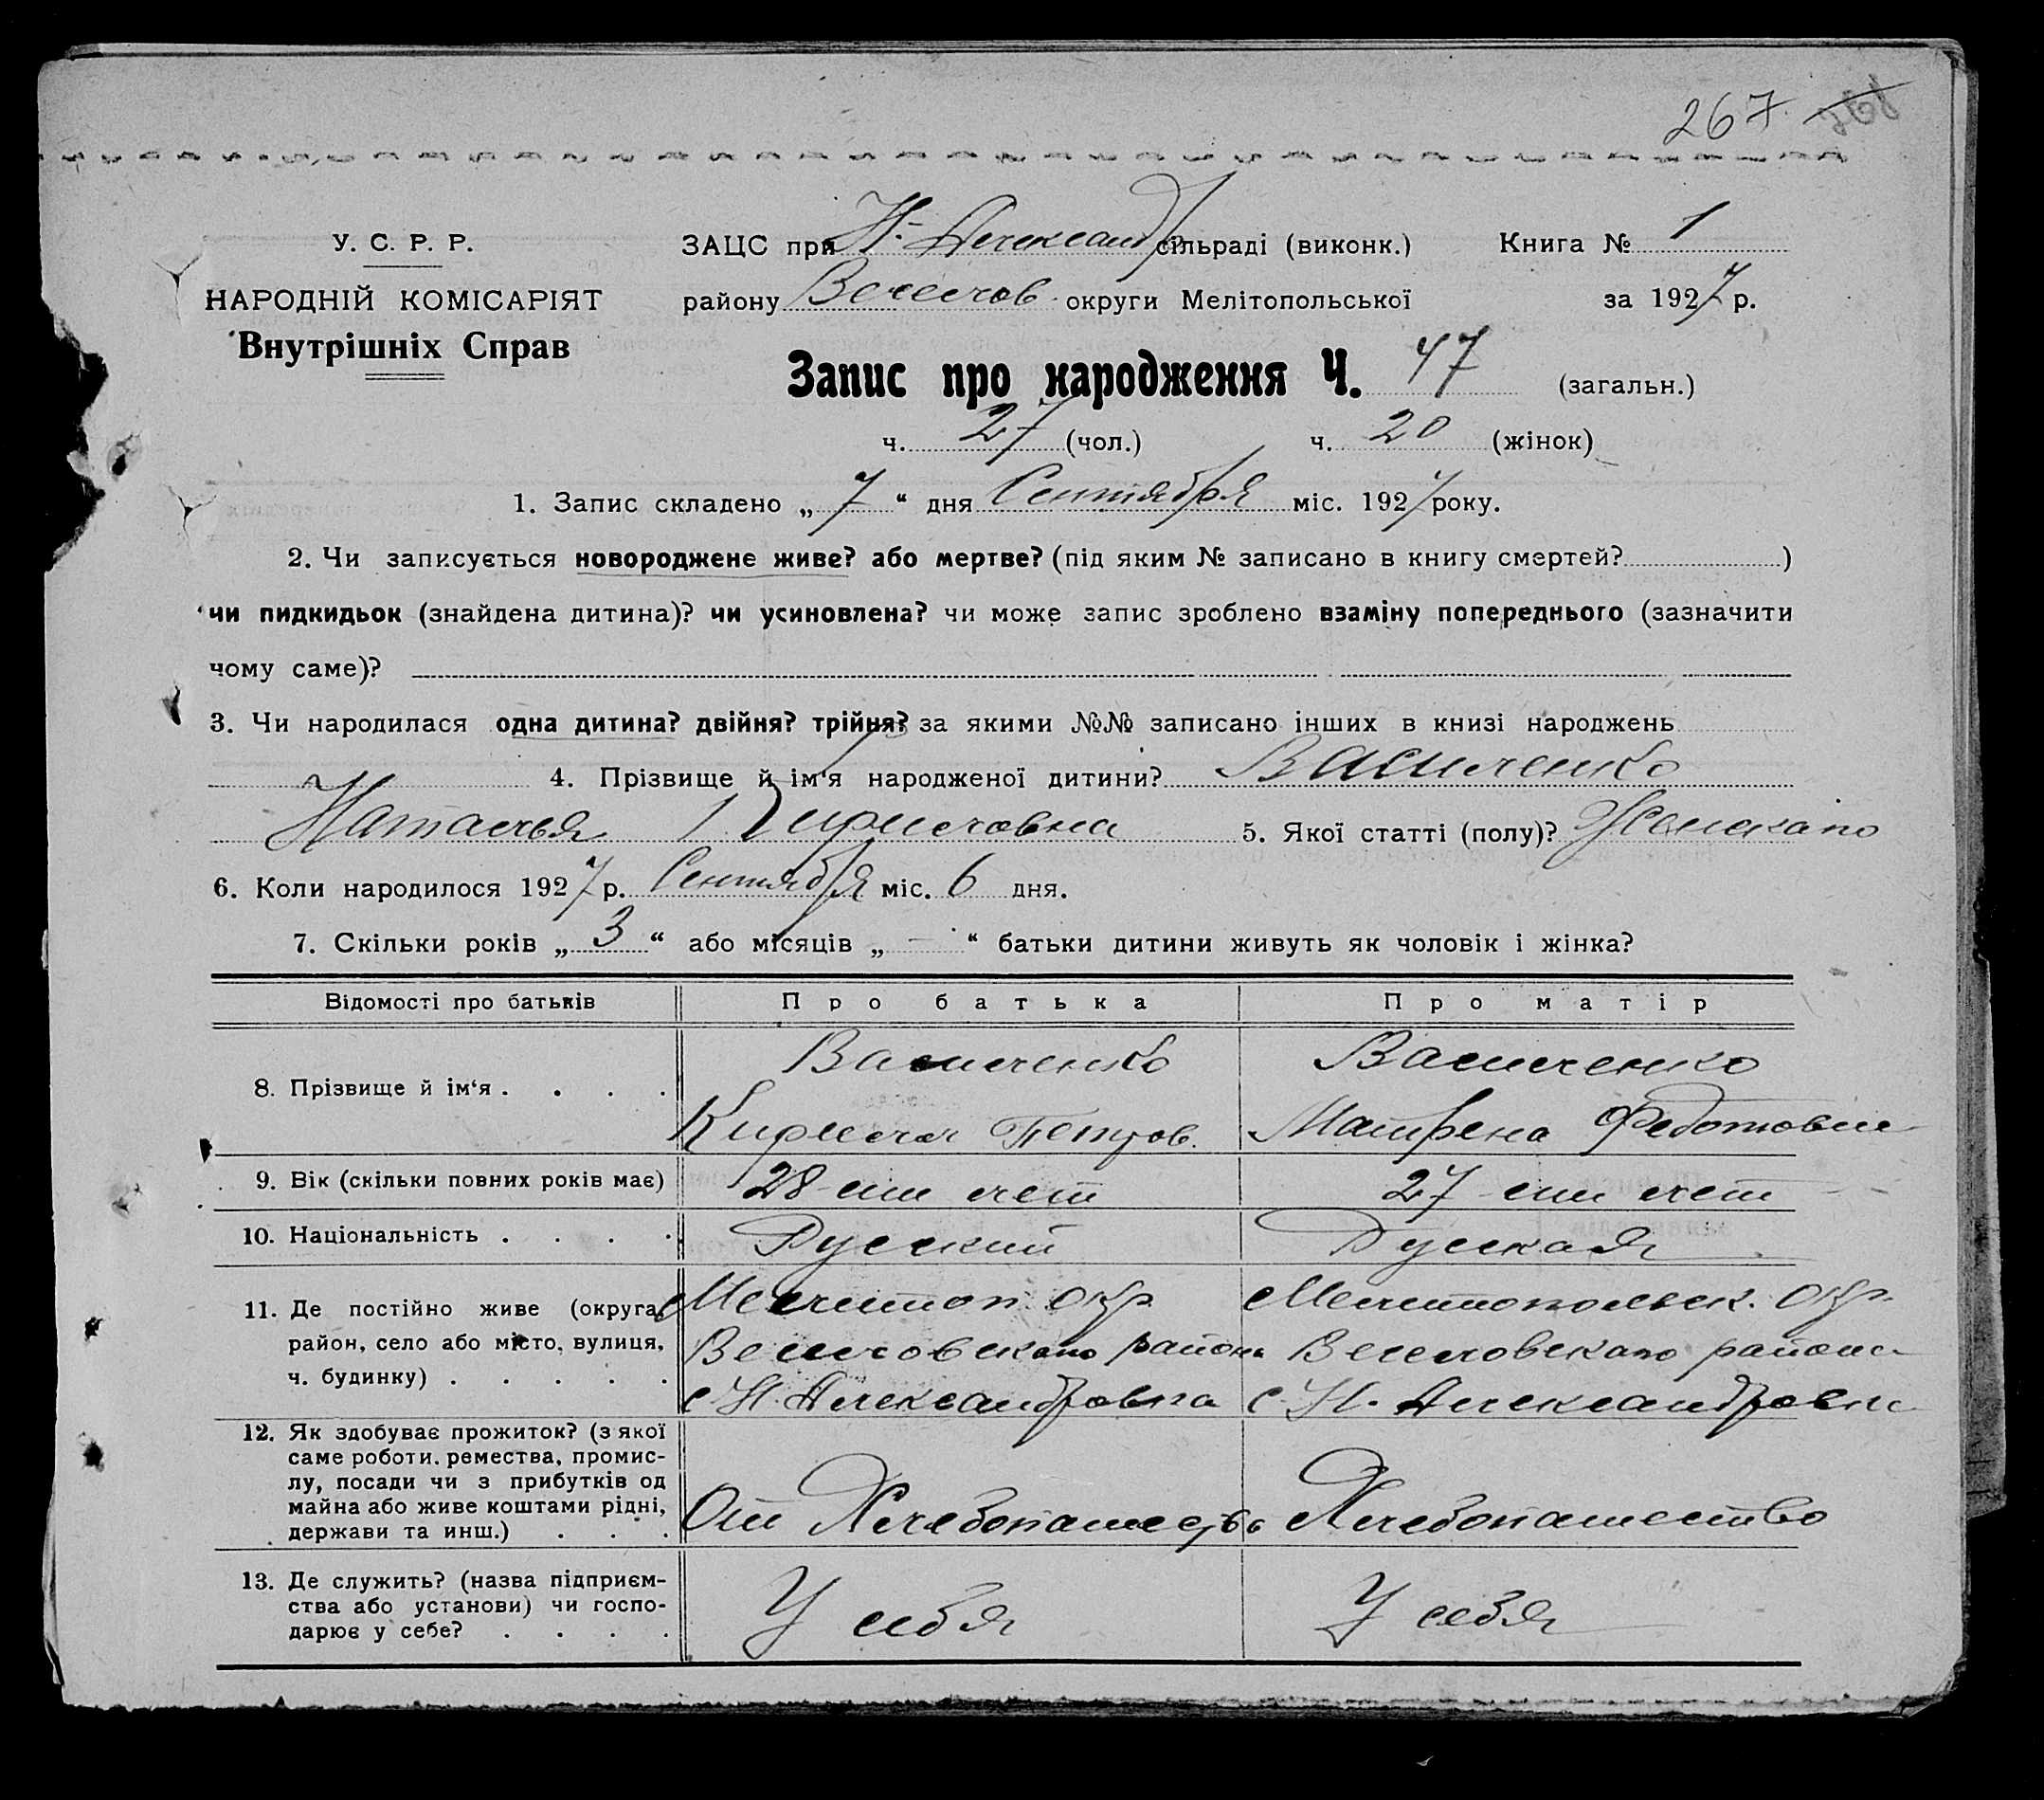 267
У. С. Р. Р.
НАРОДНІЙ КОМІСАРІЯТ
Внутрішніх Справ
ЗАЦС при Н-Александр сільраді (виконк.) Книга № 1
району Веселов. округи Мелітопольської за 1927 р.
Запис про народження Ч. 47 (загальн.)
ч. 27 (чол.) ч. 20 (жінок)
1. Запис складено „ 7 “ дня Сентября міс. 1927 року.
2. Чи записується новороджене живе? або мертве? (під яким № записано в книгу смертей? )
чи пидкидьок (знайдена дитина)? чи усиновлена? чи може запис зроблено взаміну попереднього (зазначити
чому саме)?
3. Чи народилася одна дитина? двійня? трійня? за якими №№ записано інших в книзі народжень
4. Прізвище й ім‘я народженої дитини? Василенко
Наталья Кириловна 5. Якої статті (полу)? Женскаго
6. Коли народилося 1927 р. Сентября міс. 6 дня.
7. Скільки років „ 3 “ або місяців „ - “ батьки дитини живуть як чоловік і жінка?
Відомості про батьків Про батька Про матір
8. Прізвище й ім‘я . . . . Василенко Василенко
Кирилл Петров. Матрена Федотовна
9. Вік (скільки повних років має) 28-ми лет 27-ми лет
10. Національність . . . . Русский Руская
11. Де постійно живе (округа, Мелитоп. окр. Мелитопольск. окр.
район, село або місто, вулиця, Веселовскаго района Веселовскаго района
ч. будинку) . . . . . с. Н. Александровка с. Н. Александровка
12. Як здобуває прожиток? (з якої
саме роботи, ремества, промис-
лу, посади чи з прибутків од
майна або живе коштами рідні, От Хлебопашество Хлебопашество
держави та инш.) . . .
13. Де служить? (назва підприєм-
ства або установи) чи госпо- У себя У себя
дарює у себе? . . . .